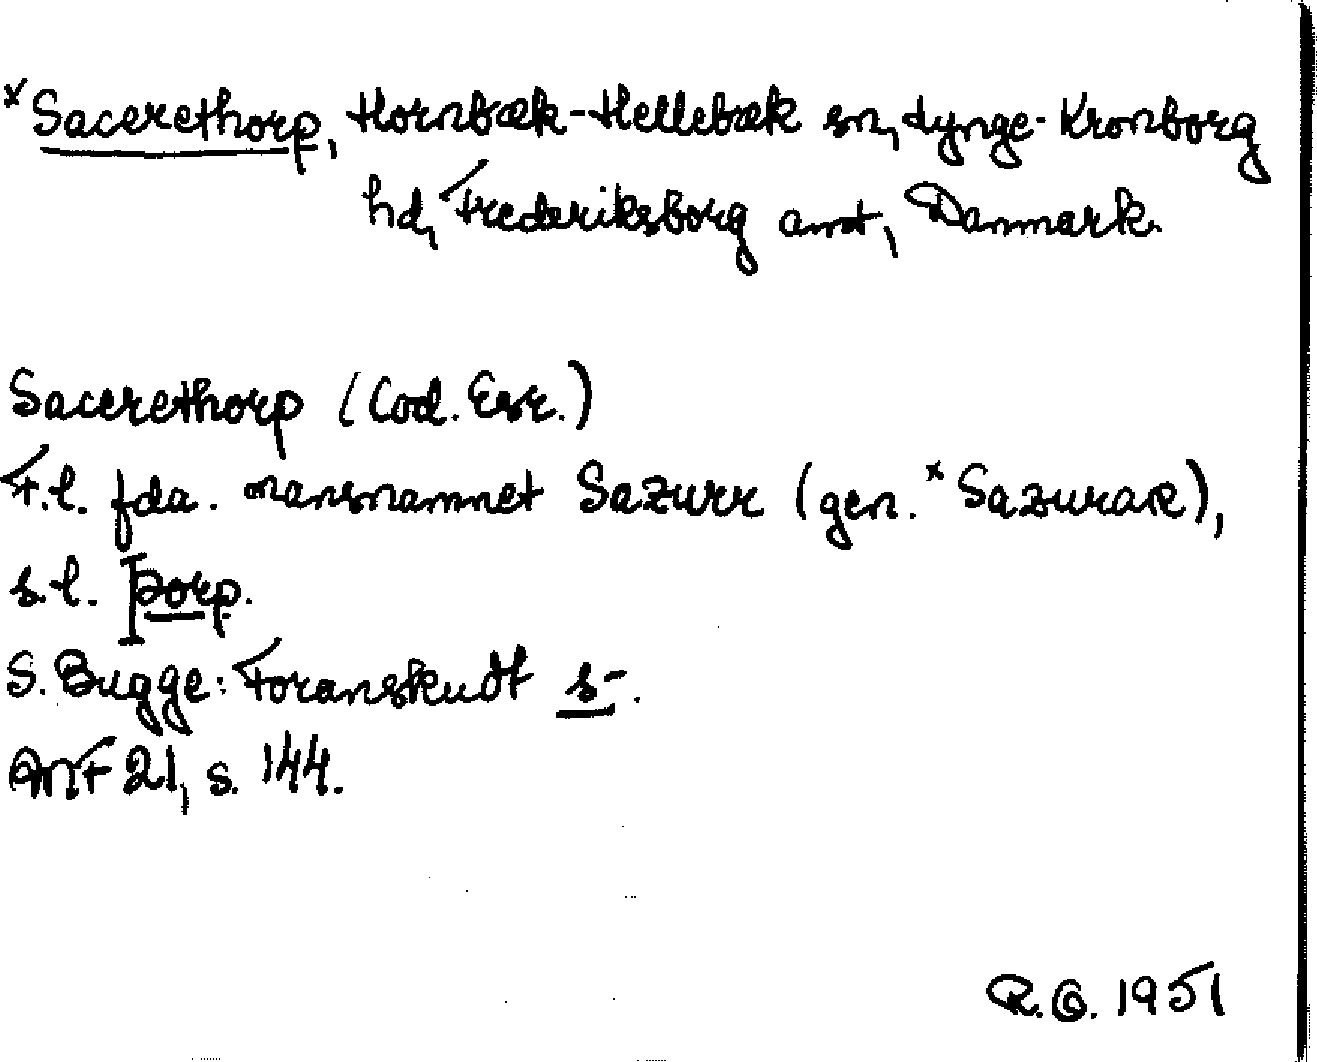 *Sacerethorp, Hornbæk-Hellebæk sn, Lynge-Kronborg
hd, Frederiksborg amt, Danmark.
Sacerethorp (Cod. Esr.)
F.l. fda. mansnamnet Sazurr (gen. *Sazurar),
s.l. þorp.
S. Bugge: Foranskudt s-.
ANF 21, s. 144.
R.G. 1951